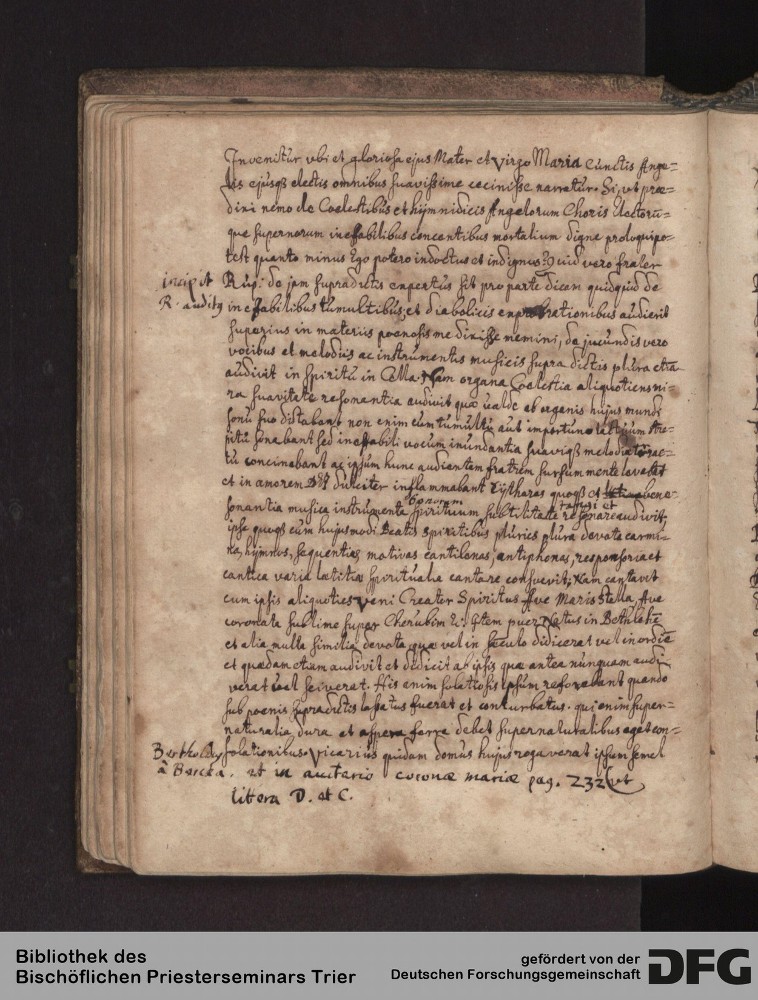 Invenitur ubi et gloriosa ejus Mater et Virgo Maria cunctis Ange=
lis ejusq electis omnibus suavissime cecinisse narratur. Si, ut præ=
dixi nemo de Coelestibus et hymnidicis Angelorum Choris Electorū=
que supernorum ineffabilibus concentibus mortalium digne proloqui po=
test quanto minus Ego potero indoctus et indignus? Quid vero frater
incipit
R. auditq
Rup: de jam supradictis expertus sit pro parte dicam quidquid de
ineffabilibus tumultibus, et diabolicis audierit
superius in materiis poenosis me dixisse memini, de jucundis vero
vocibus et melodiis ac instrumentis musicis supra dictis plura etiā
audivit in spiritu in Cella. Nam organa Coelestia aliquotiens mi=
ra suavitate resonantia audivit quæ valde ab organis hujus mundi
sono suo distabant non enim cum tumultu aut importuno stre=
pitu sonabant sed ineffabili vocum inundantia suaviq melodia
concinebant ac ipsum hunc audientem fratrem sursum mente levabat
et in amorem DEI dulciter inflammabant Cytharas quoq et bene
sonantia musica instrumenta spirituum subtilitate resonare audivit,
bonorum
tangi et
ipse quoq cum hujusmodi Beatis spiritibus pluries plura devota carmi=
na, hymnos, sequentias, motivas cantilenas, antiphonas, responsoria et
cantica varia lætitiæ spiritualia cantare consuevit; Nam cantavit
cum ipsis aliquoties Veni Creator Spiritus Ave Maris stella, Ave
sublime super Cherubim &c. Item puer Natus in Bethlehē
et alia multa similia devota, quæ vel in sæculo didicerat vel in ordiē
et quædam etiam audivit et didicit ab ipsis quæ antea nunquam audi=
verat vel sciverat. His enim solatiosis ipsum refovebant quando
sub poenis supradictis lassatus fuerat et conturbatus. qui enim super=
naturalia dura et aspera ferre debet supernaturalibus eget con=
solationibus. Vicarius quidam domus hujus rogaverat ipsum semel
Bertholdq
à
ut in auctario coronæ mariæ pag. 232 ut
littera D. et C.
Bibliothek des
Bischöflichen Priesterseminars Trier
gefördert von der
Deutschen Forschungsgemeinschaft
DFG